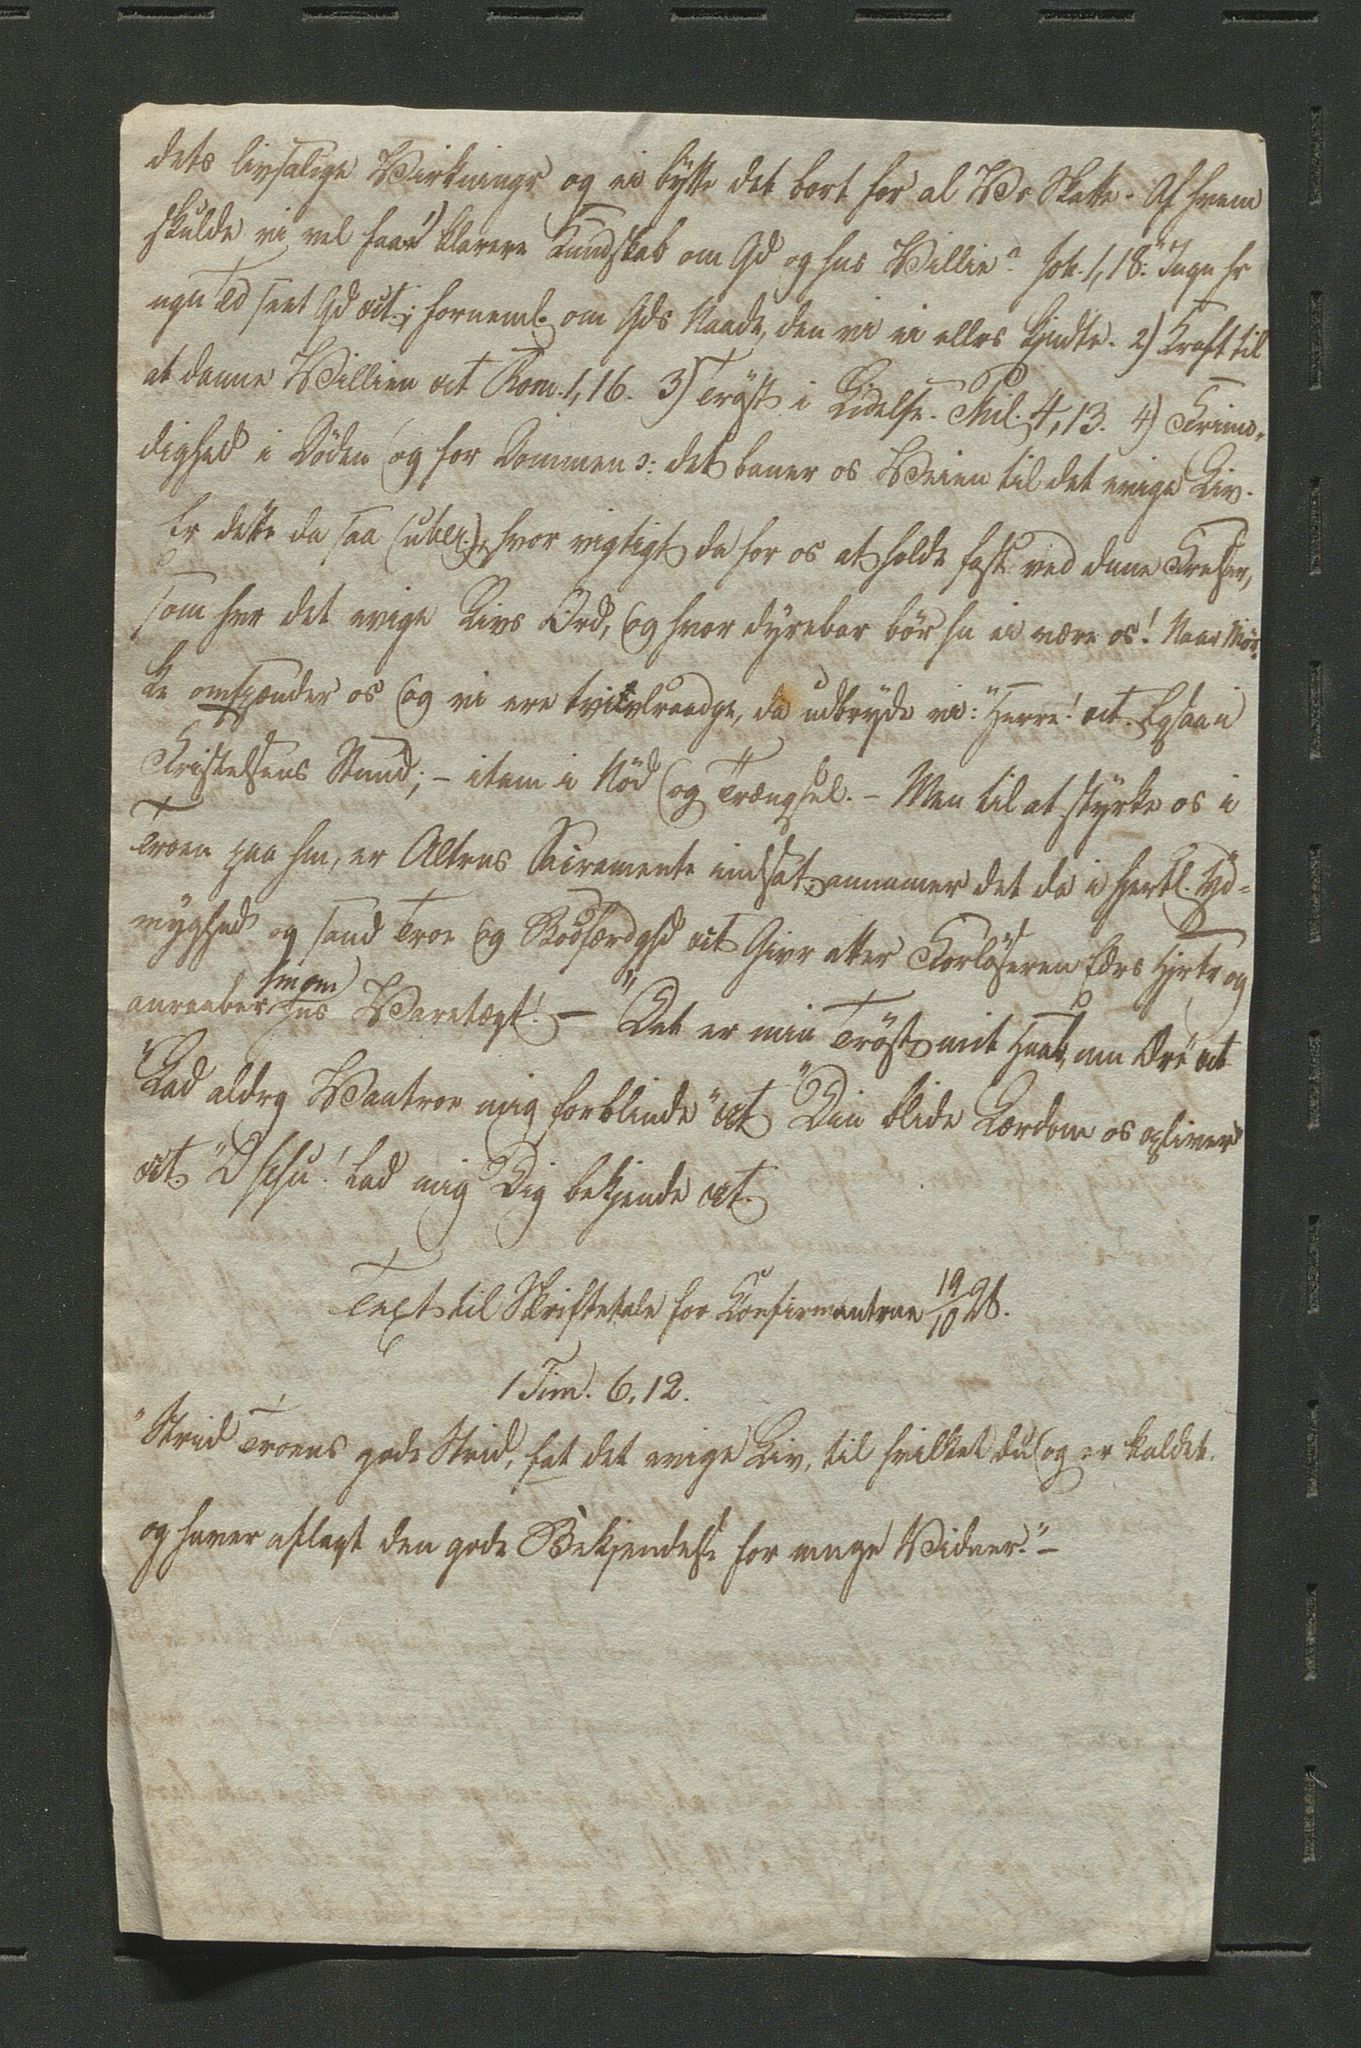 dets livsalige Virkningr og ei bytte det bort for al Vs Skatte. Af hvem
skulde vi vel faae 1) klarere Kundskab om Gd og hns Villie? Joh. 1,18: "Ingn hr
ngn Td seet Gd" oct; forneml. om Gds Naade, den vi ei ellrs kjndte. 2) Kraft til
at danne Villien oct Rom. 1,16. 3) Tröst i Lidelse. Phil. 4,13. 4) Frimo-
dighed i Döden og for Dommen ɔ: det baner os Veien til det evige Liv.
Er dette da saa (ubl.), hvor vigtigt da for os at holde fast ved dnne Frelser,
som hvr det evige Livs Ord, og hvor dyrebar bör hn ei være os! Naar Mör-
ke omspænder os og vi ere tvivlraadge, da udbryde vi: "Herre!" oct. Lgsaa i
Fristelsens Stund; - item i Nöd og Trængsel. - Men til at styrke os i
Troen paa hm, er Altrns Sacramente indsat, annamer det da i hertl. Yd-
myghed og sand Troe og Bodfærdghd oct Givr atter Forlöseren Edrs Hjrtr og
anraaber hm om hns Varetægt! - "Det er min Tröst, mit Haab, min Ære" oct
"Lad aldrg Vantroe mig forblinde" oct "Din blide Lærdom os opliver"
oct. "O Jesu! lad mig Dig bekjende oct.
Text til Skriftetale for Confirmantrne 19/10 28.
1 Tim. 6,12.
"Strid Troens gode Strid, fat det evige Liv, til hvilket du og er kaldet,
og haver aflagt den gode Bekjendelse for mnge Vidner." -